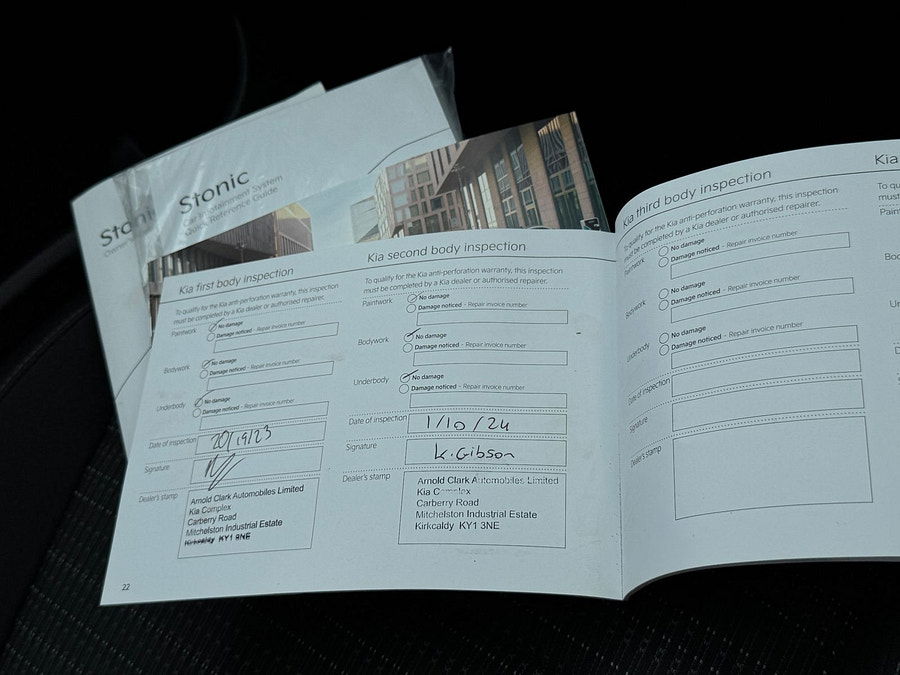 Stonic
Owner's
Stonic
Car Infotainment System
Quick Reference Guide
Kia first body inspection
To qualify for the Kia anti-perforation warranty, this inspection
must be completed by a Kia dealer or authorised repairer.
Paintwork
No damage
Damage noticed – Repair invoice number
Bodywork
No damage
Damage noticed – Repair invoice number
Underbody
No damage
Damage noticed – Repair invoice number
Date of inspection
Signature
Dealer's stamp
Arnold Clark Automobiles Limited
Kia Complex
Carberry Road
Mitchelston Industrial Estate
Kirkcaldy KY1 3NE
22
Kia second body inspection
To qualify for the Kia anti-perforation warranty, this inspection
must be completed by a Kia dealer or authorised repairer.
Paintwork
No damage
Damage noticed – Repair invoice number
Bodywork
No damage
Damage noticed – Repair invoice number
Underbody
No damage
Damage noticed – Repair invoice number
Date of inspection 1/10/24
Signature K.Gibson
Dealer's stamp
Arnold Clark Automobiles Limited
Kia Complex
Carberry Road
Mitchelston Industrial Estate
Kirkcaldy KY1 3NE
Kia third body inspection
To qualify for the Kia anti-perforation warranty, this inspection
must be completed by a Kia dealer or authorised repairer.
Paintwork
No damage
Damage noticed – Repair invoice number
Bodywork
No damage
Damage noticed – Repair invoice number
Underbody
No damage
Damage noticed – Repair invoice number
Date of inspection
Signature
Dealer's stamp
Kia
To qu
must
Paint